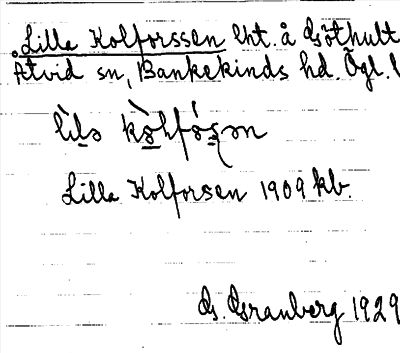 Lilla Kolforssen lht. å Göthult
Åtvid sn, Bankekinds hd. Ögl. l
lìlа kòlfórsən
Lilla Kolforsen 1909 kb.
G. Granberg 1929